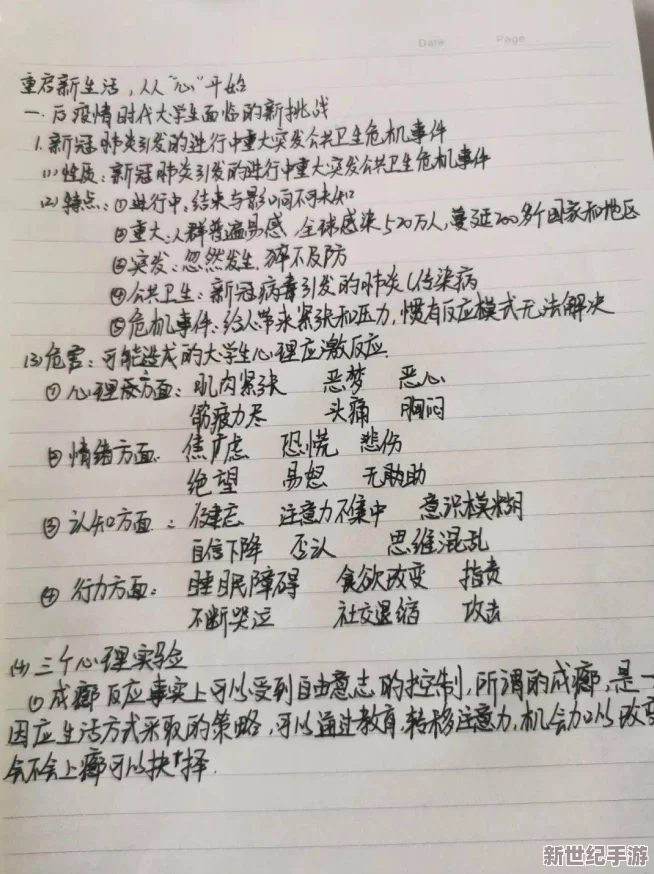 Date Page
重启新生活，从"心"开始
一、后疫情时代大学生面临的新挑战
1.新冠肺炎引发的进行中重大突发公共卫生危机事件
(1)性质：新冠肺炎引发的进行中重大突发公共卫生危机事件
(2)特点：①进行中，结束与影响不可未知
②重大：人群普遍易感，全球感染520万人，蔓延200多个国家和地区
③突发：忽然发生，猝不及防
④公共卫生：新冠病毒引发的肺炎（传染病
⑤危机事件：给人带来紧张和压力，惯有反应模式无法解决
(3)危害：可能造成的大学生心理应激反应
①心理方面：肌肉紧张 恶梦 恶心
筋疲力尽 头痛 胸闷
②情绪方面 焦虑 恐慌 悲伤
绝望 易怒 无助
③认知方面：健忘 注意力不集中 意识模糊
自信下降 否认 思维混乱
④行力方面：睡眠障碍 食欲改变 指责
不断哭泣 社交退缩 攻击
(4)三个心理实验
①成瘾反应事实上可以受到自由意志的控制，所谓的成瘾，是一
因应生活方式采取的策略，可以通过教育，转移注意力，机会加以改变
会不会上瘾可以抉择.
新世纪手游